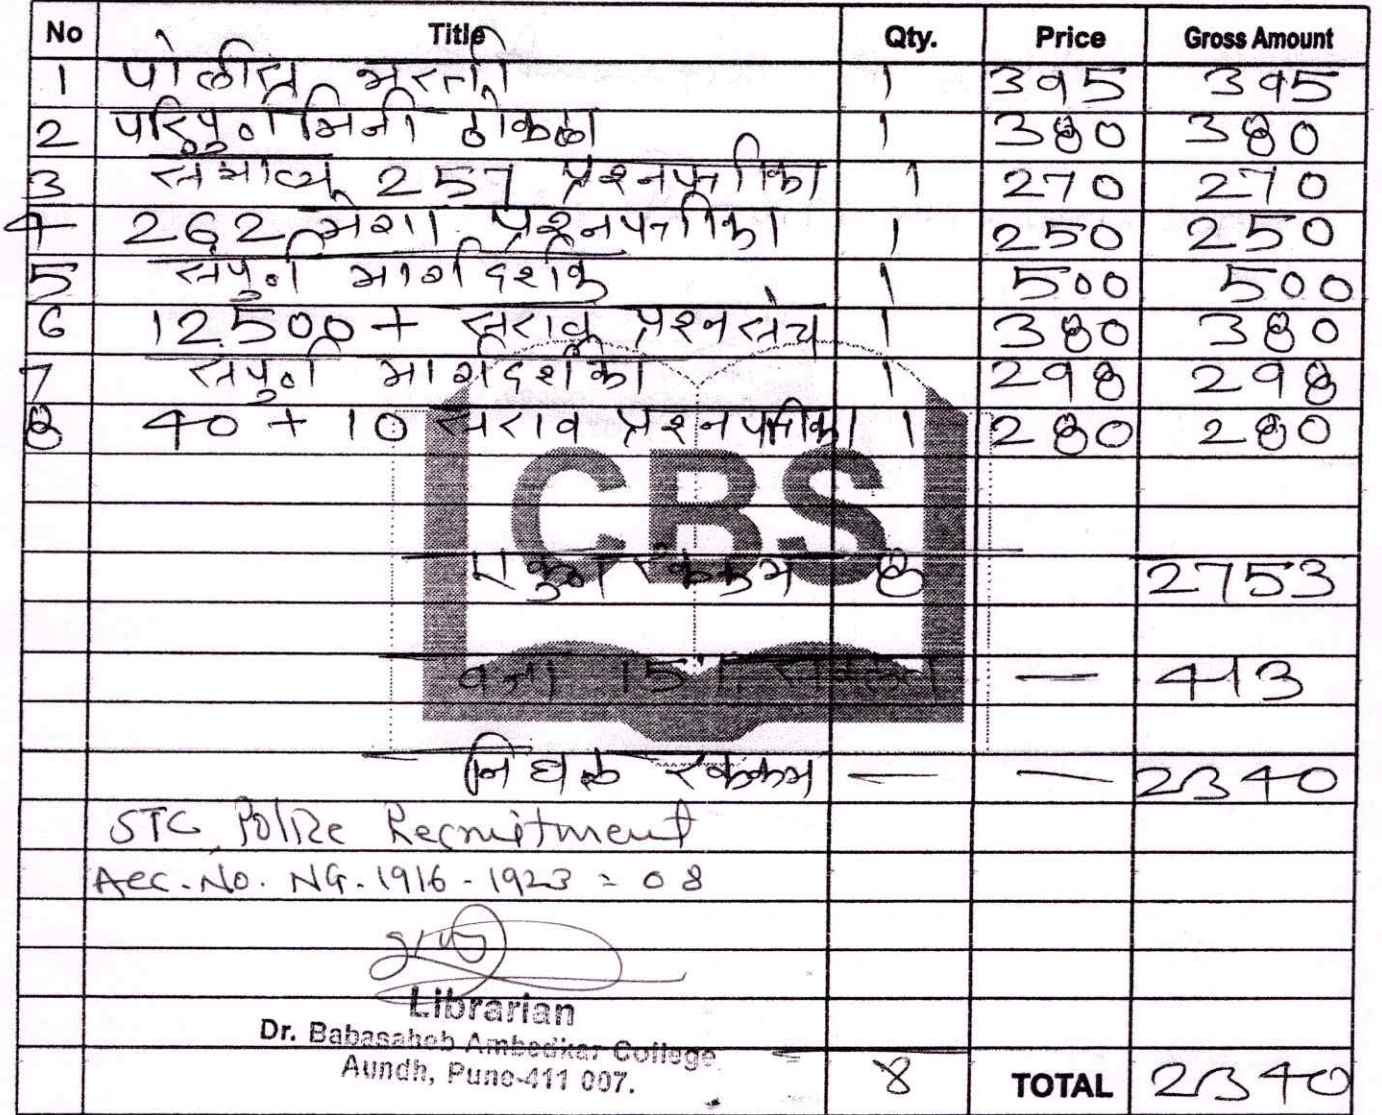 No Title Qty. Price Gross Amount
1 पोलीस भरती 1 395 395
2 परिपुर्ण मिनी ठोकळा 1 380 380
3 संभाव्य 257 प्रश्नपत्रीका 1 270 270
4 262 मेगा प्रश्नपत्रीका 1 250 250
5 संपुर्ण मार्गदर्शक 1 500 500
6 12500+ सराव प्रश्नसंच 1 380 380
7 संपुर्ण मार्गदर्शिका 1 298 298
8 40 + 10 सराव प्रश्नपत्रीका 1 280 280
CBS
एकुण रक्कम 8 2753
वजा 15% सवलत — 413
निव्वळ रक्कम — — 2340
STC Police Recruitment
Acc. No. NG. 1916 - 1923 = 08
Librarian
Dr. Babasaheb Ambedkar College
Aundh, Pune-411 007.
8 TOTAL 2340